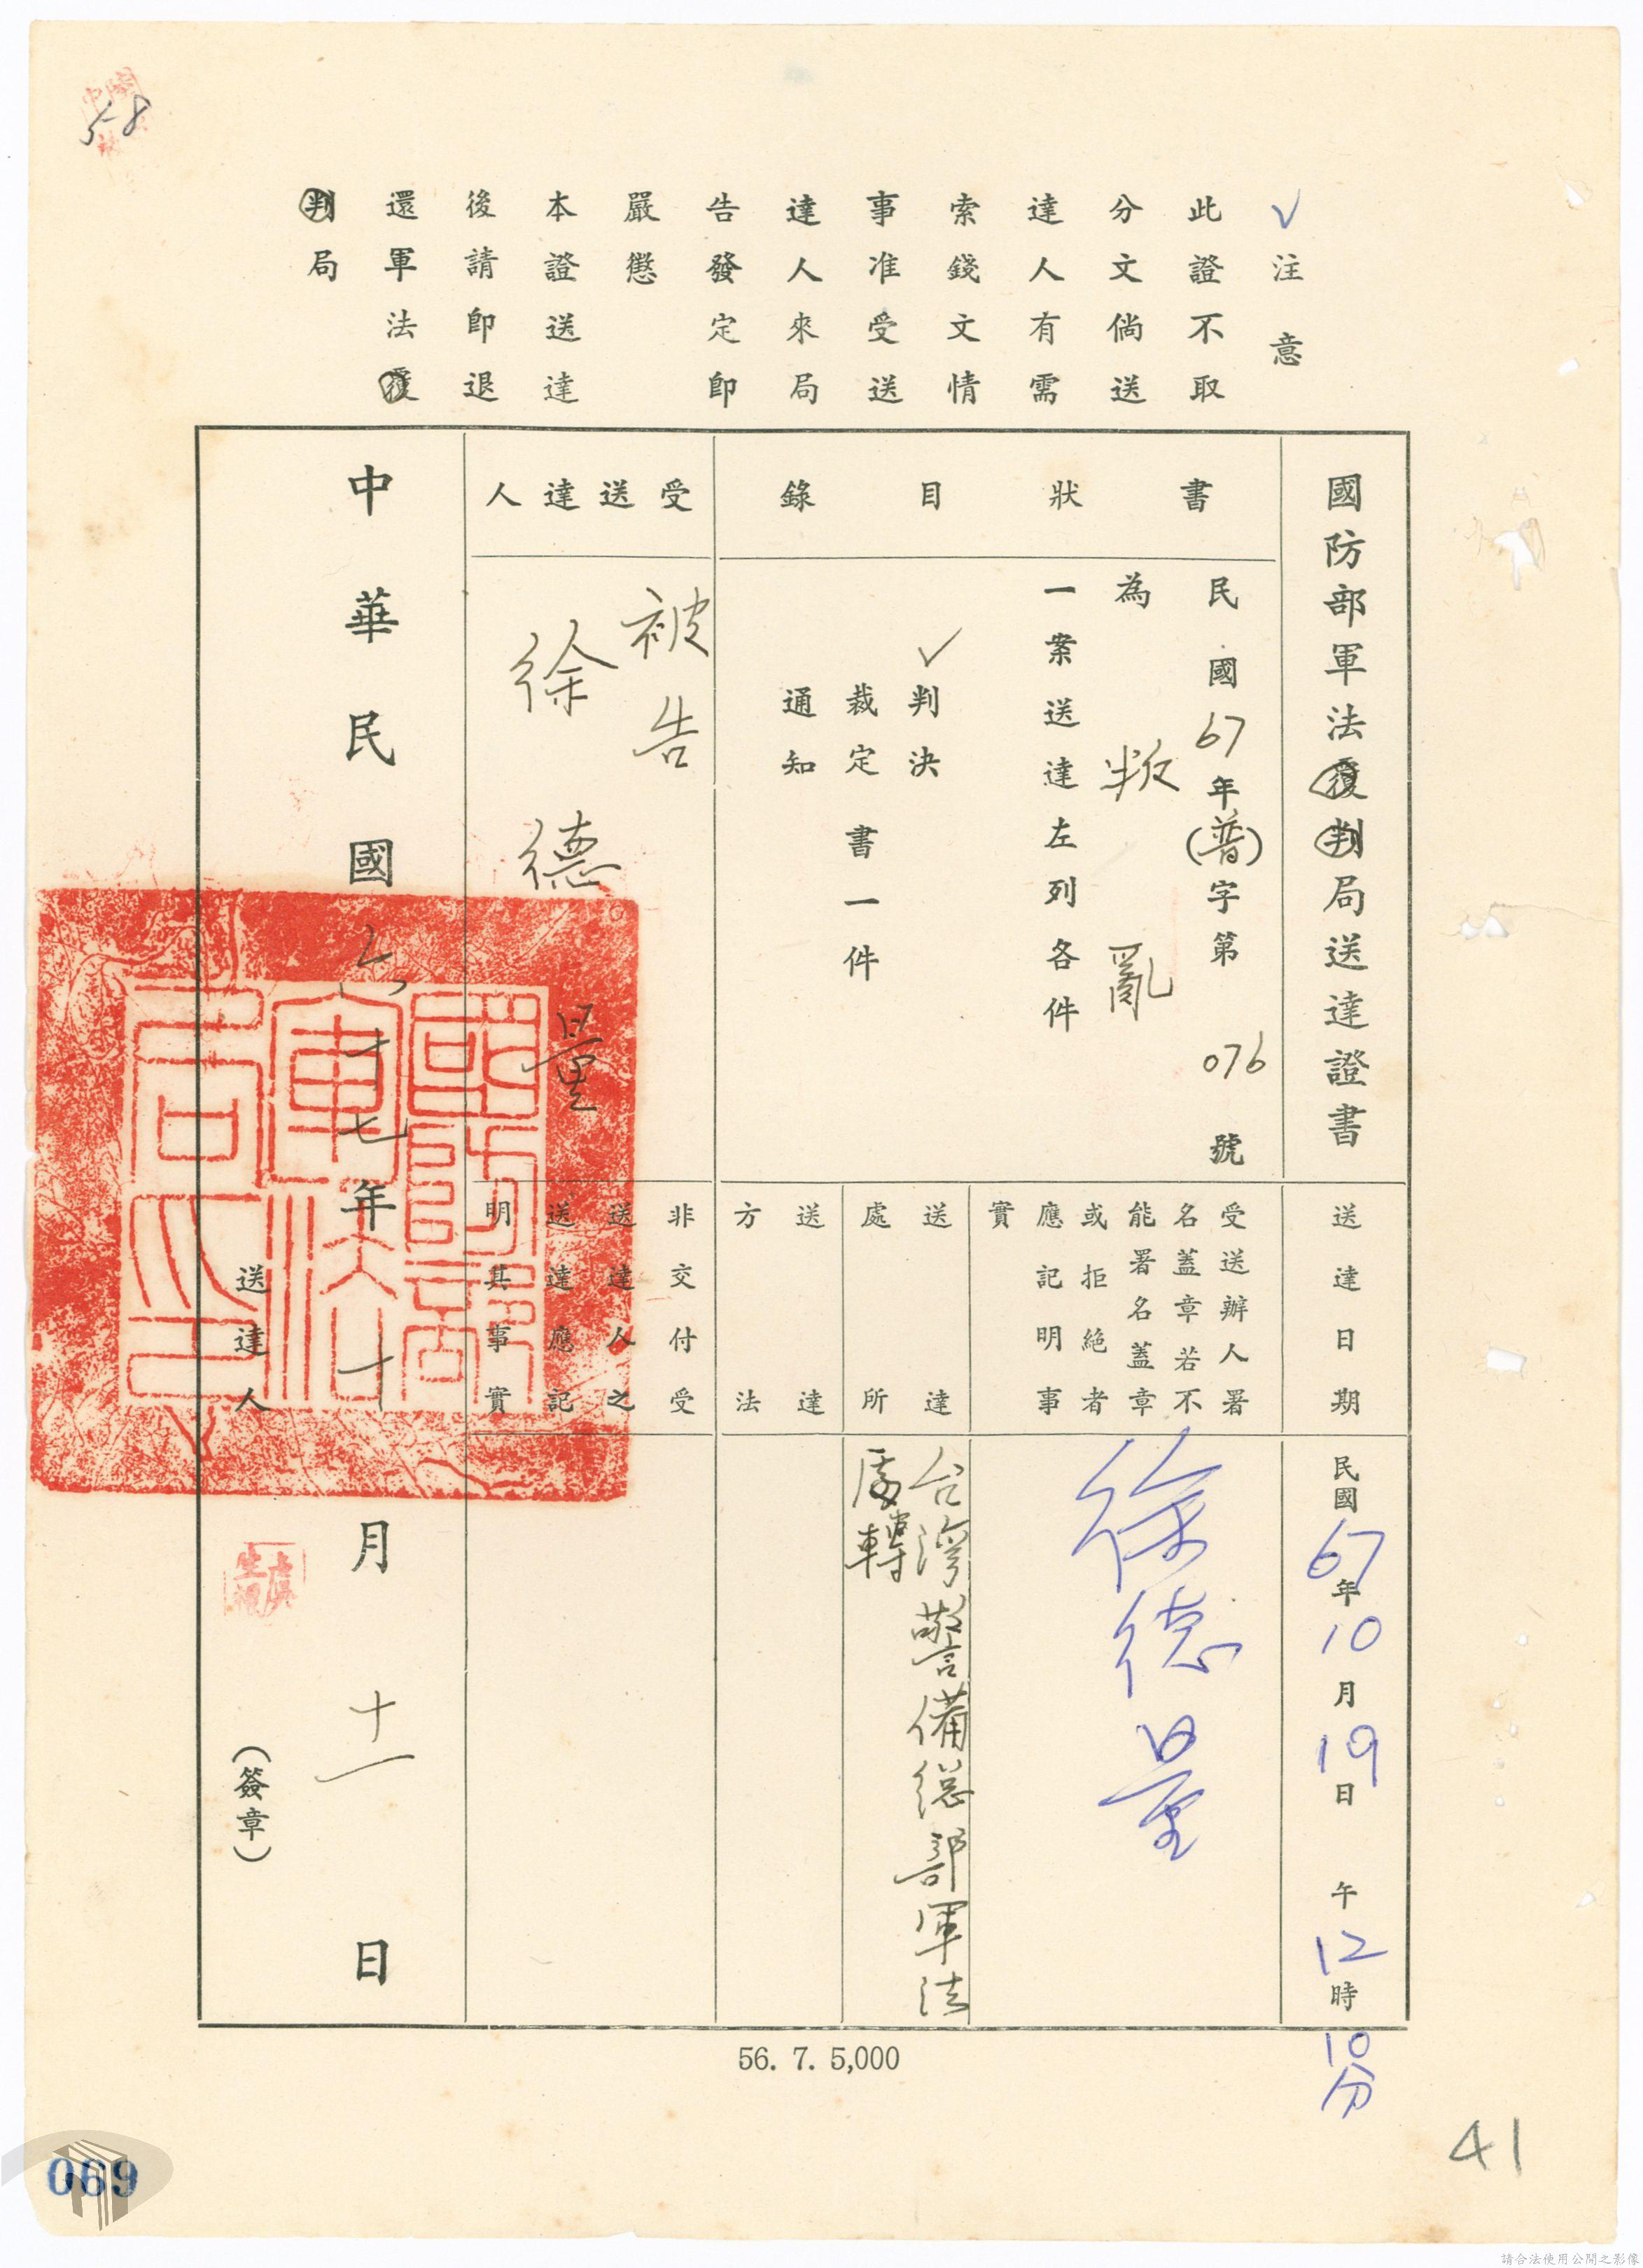 58
注意
此證不取
分文倘送
達人有需
索錢文情
事准受送
達人來局
告發定即
嚴懲
本證送達
後請即退
還軍法覆
判局
國防部軍法覆判局送達證書
書狀目錄
民國67年(普)字第076號
為叛亂
一案送達左列各件
判決
裁定書一件
通知
受送達人
被告
徐德量
送達日期
民國67年10月19日午12時10分
受送辦人署
名蓋章若不
能署名蓋章
或拒絕者
應記明事
實
徐德量
送達
處所
台灣警備總部軍法
處轉
送達
方法
非交付受
送達人之
送達應記
明其事實
中華民國六十七年十月十一日
國防部
軍法
局之
送達人
(簽章)
56. 7. 5,000
41
069
請合法使用公開之影像